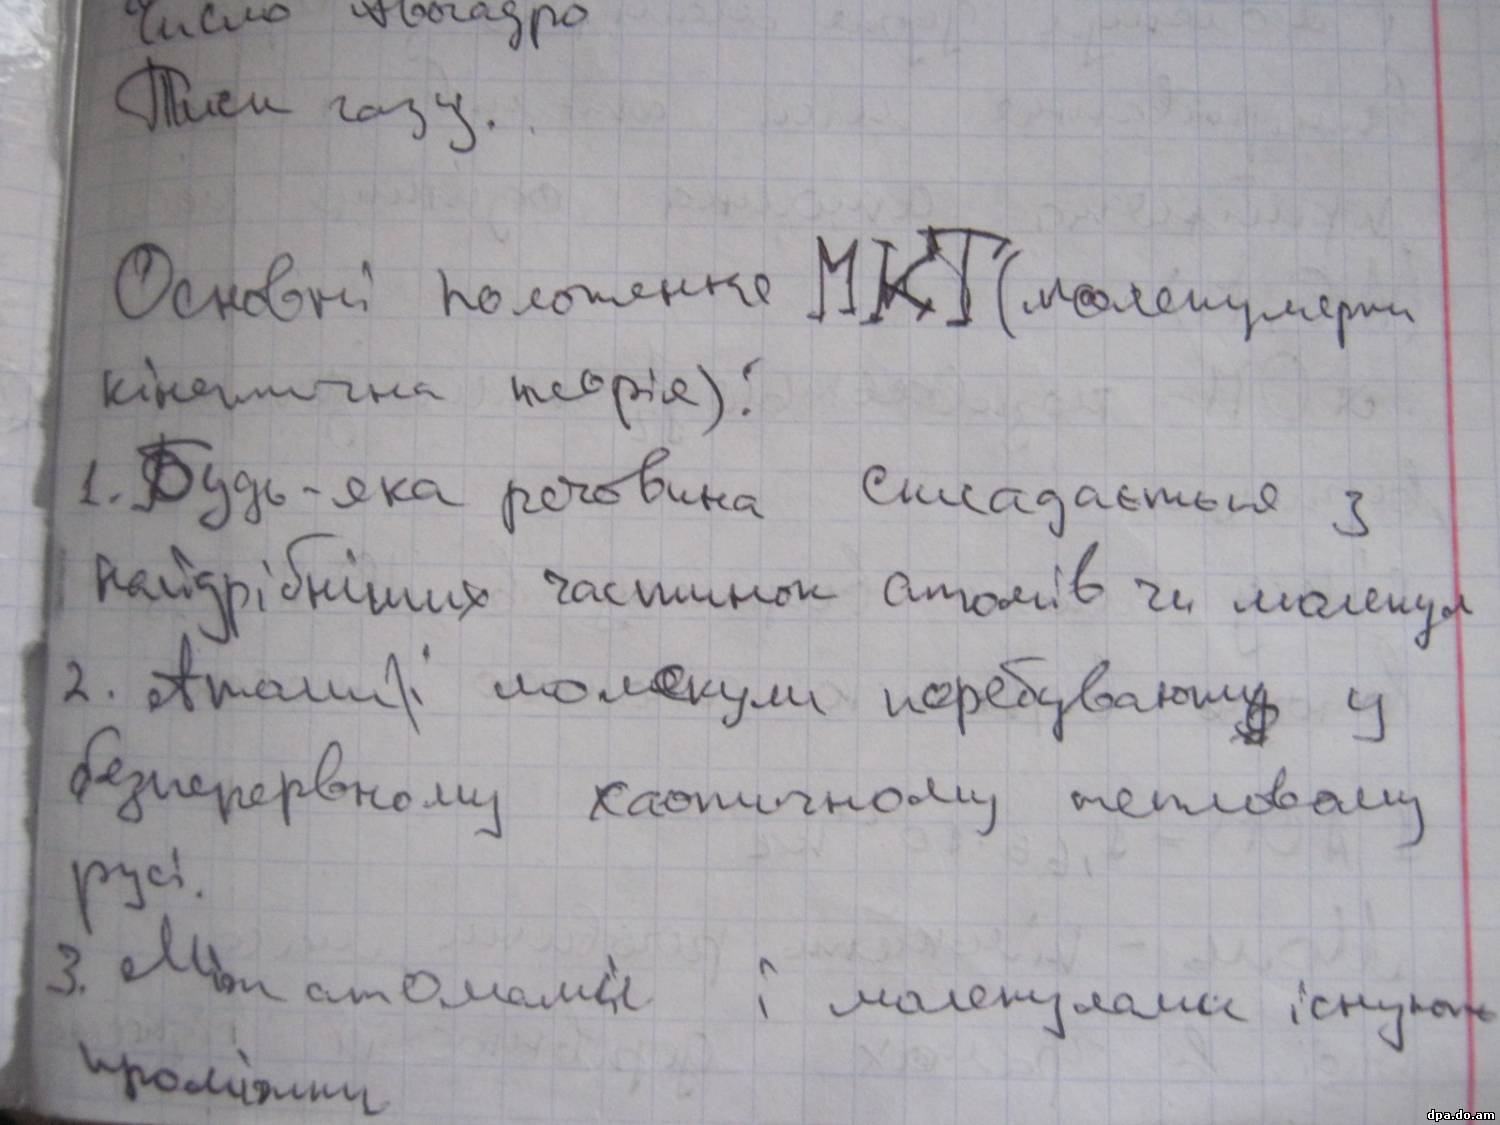 Число Авогадро
Тиск газу.
Основні положення МКТ (молекулярно
кінетична теорія):
1. Будь-яка речовина складається з
найдрібніших частинок атомів чи молекул
2. Атоми і молекули перебувають у
безперервному хаотичному тепловому
русі.
3. Між атомами і молекулами існують
проміжки
dpa.do.am